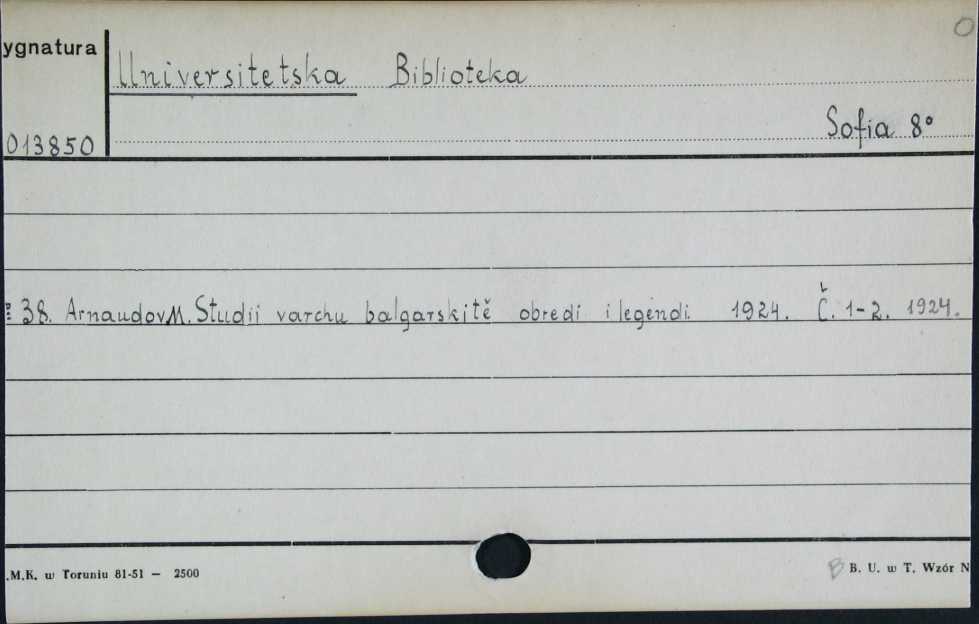 O
ygnatura
Universitetska Biblioteka
Sofia 8°
013850
№ 38. Arnaudov M. Studii varchu balgarskitě obredi i legendi. 1924. Č. 1-2. 1924.
.M.K. w Toruniu 81-51 — 2500
B B. U. w T. Wzór N